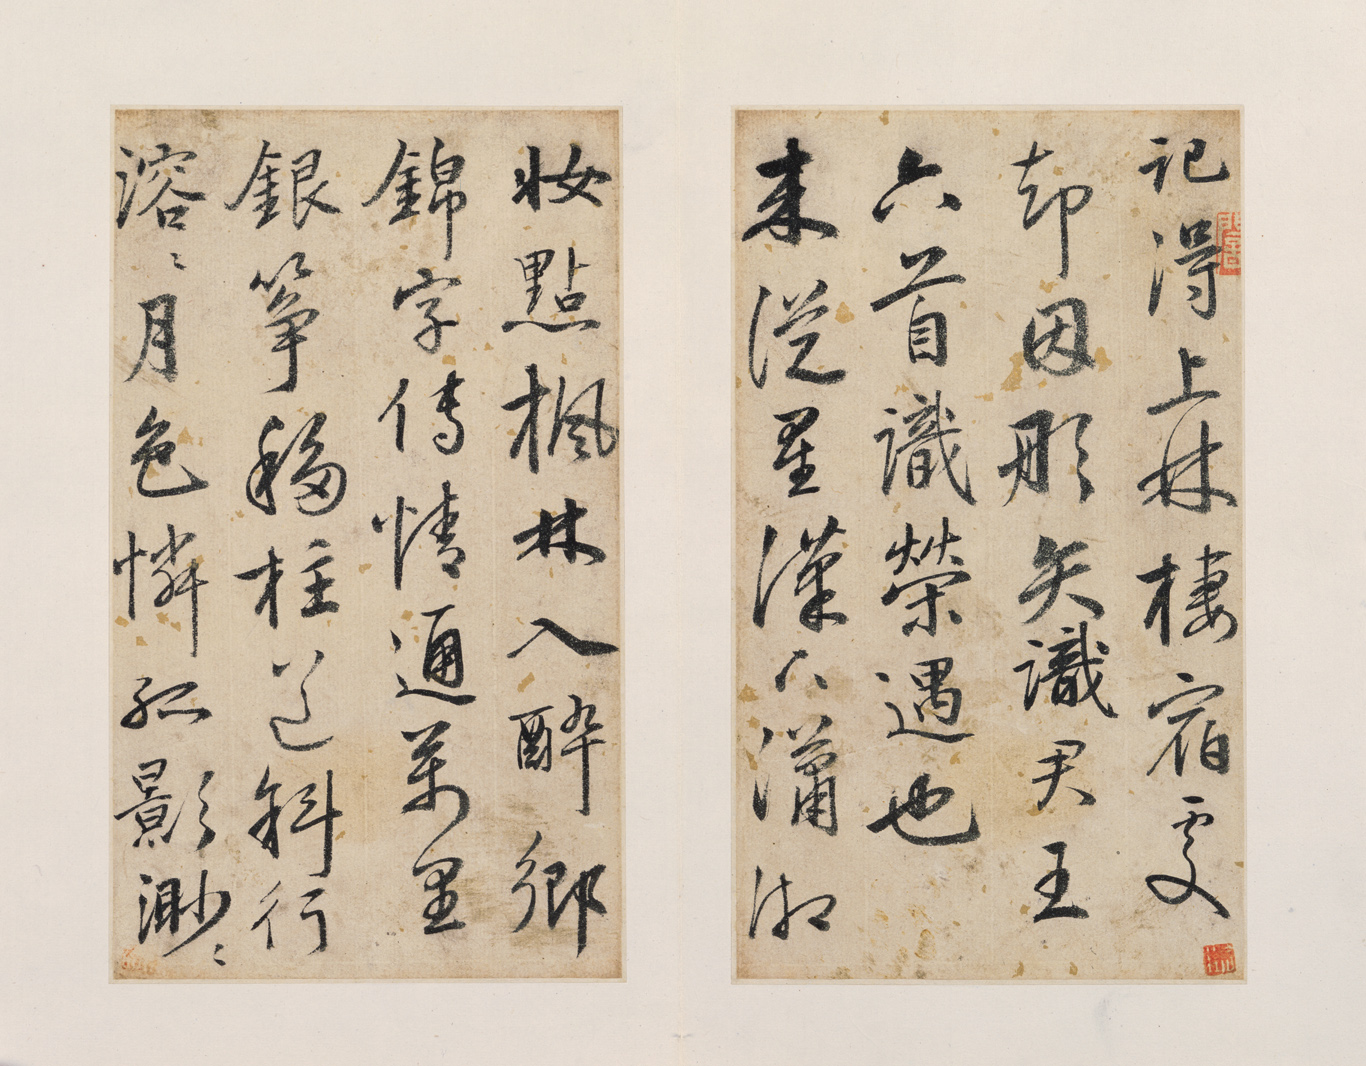 記得上林棲宿處
却因彤矢識君王
六首識榮遇也
來從星漢下瀟湘
妝點楓林入醉鄉
錦字傳情通萬里
銀箏移柱斜行
溶〻月色憐孤影渺〻